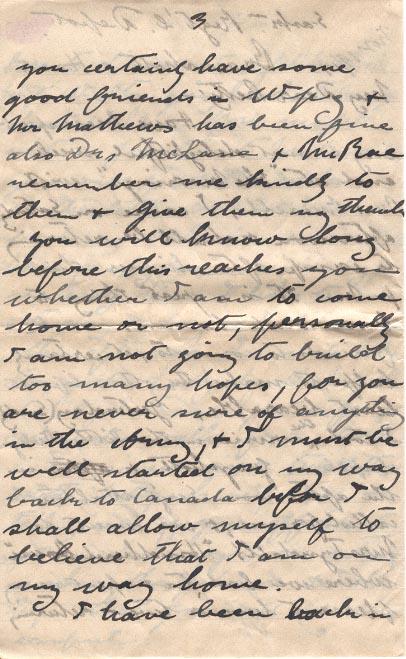 3
you certainly have some
good friends in Wpg &
Mr Mathews has been fine
also Drs McLane & McRae
remember me kindly to
them & give them my thanks
You will know long
before this reaches you
whether I am to come
home or not, personally
I am not going to build
too many hopes, for you
are never sure of anything
in the Army, & I must be
well started on my way
back to Canada before I
shall allow myself to
believe that I am on
my way home.
I have been back in